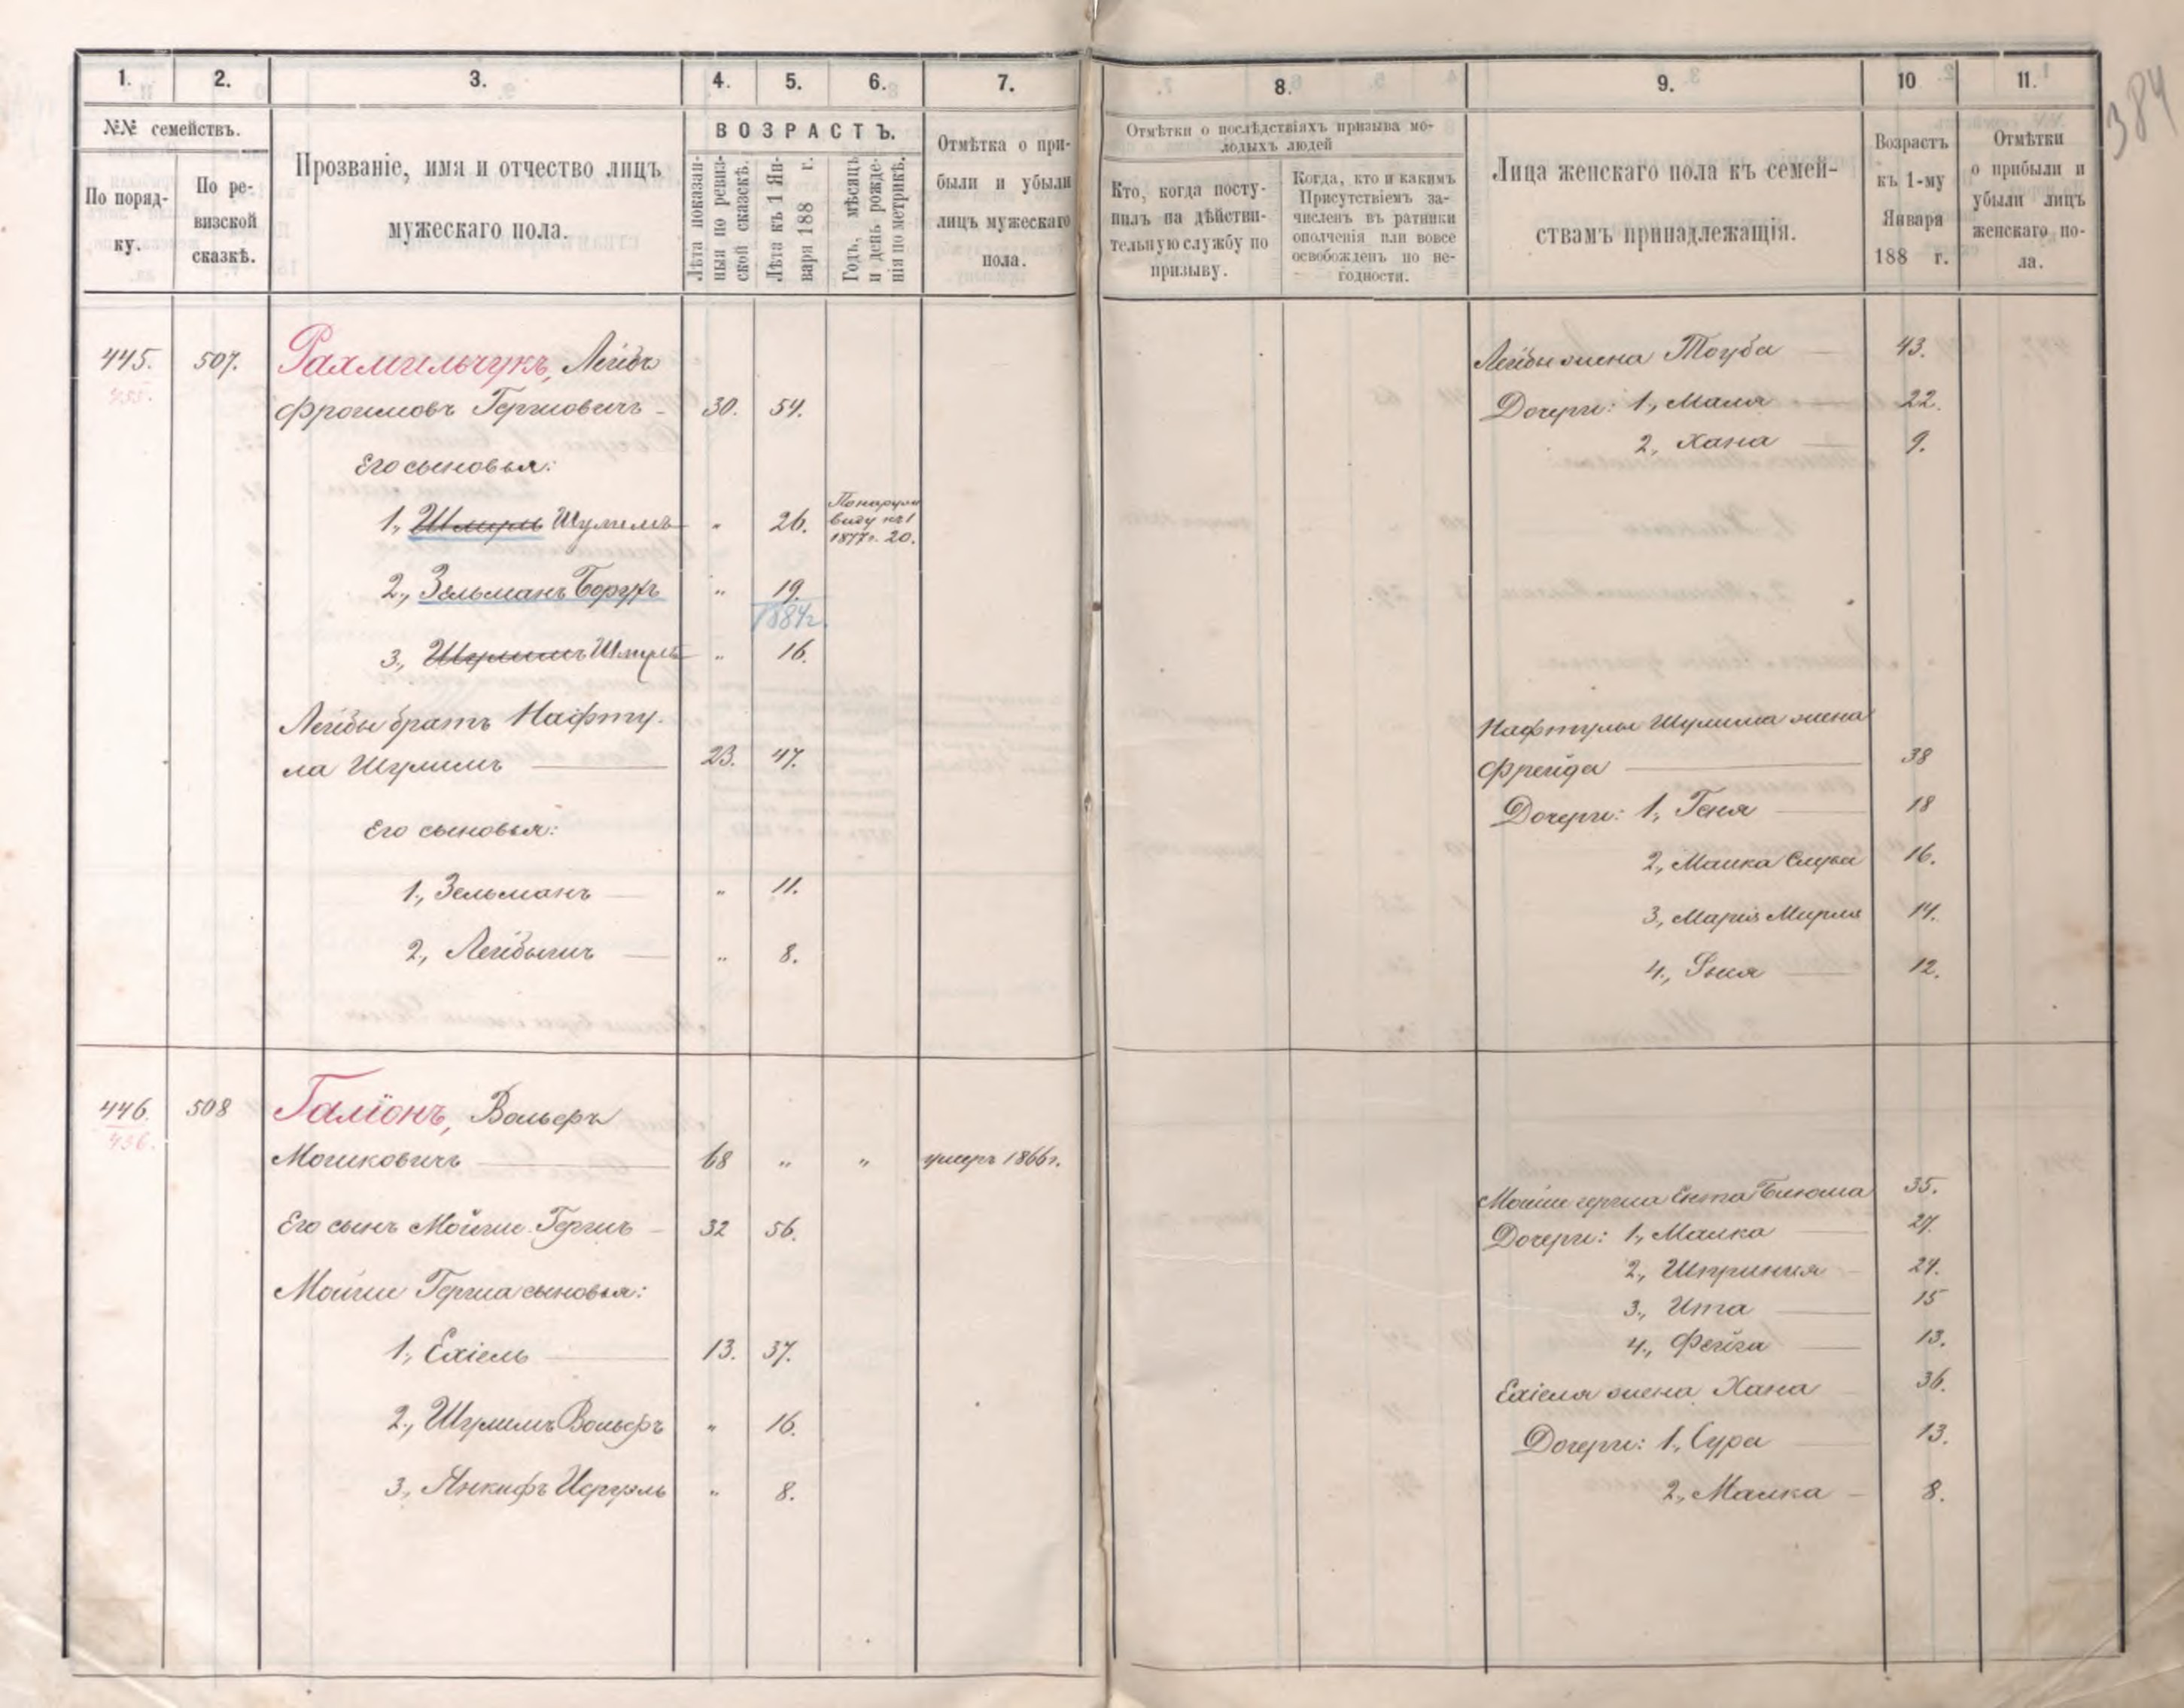 384
1.
2.
3.
4.
5.
6.
7.
№№ семействъ.
По поряд-
ку.
По ре-
визской
сказкѣ.
Прозваніе, имя и отчество лицъ
мужескаго пола.
ВОЗРАСТЪ.
Лѣта показан-
ныя по ревиз-
ской сказкѣ.
Лѣта къ 1 Ян-
варя 188 г.
Годъ, мѣсяцъ
и день рожде-
нія по метрикѣ.
Отмѣтка о при-
были и убыли
лицъ мужескаго
пола.
445.
455.
507.
Рахмильчукъ, Лейба
Фроимовъ Гершовичъ 30. 54.
Его сыновья:
1., Шмуль Шулимъ " 26.
виду №1
1877г. 20.
2., Зельманъ Борухъ " 19.
1884г.
3., Шулимъ Шмуль " 16.
Лейбы братъ Нафту-
ла Шулимъ 23. 47.
Его сыновья:
1., Зельманъ " 11.
2., Лейбышъ " 8.
446.
456.
508
Галіонъ, Вольфъ
Мошковичъ 68 " " умеръ 1866г.
Его сынъ Мойше Гершъ 32 56.
Мойше Герша сыновья:
1., Ехіель 13. 37.
2., Шулимъ Вольфъ " 16.
3., Янкифъ Исруэль " 8.
8.
9.
10
11.
Отмѣтки о послѣдствіяхъ призыва мо-
лодыхъ людей
Кто, когда посту-
пилъ на дѣйстви-
тельную службу по
призыву.
Когда, кто и какимъ
Присутствіемъ за-
численъ въ ратники
ополченія или вовсе
освобожденъ по не-
годности.
Лица женскаго пола къ семей-
ствамъ принадлежащія.
Возрастъ
къ 1-му
Января
188 г.
Отмѣтки
о прибыли и
убыли лицъ
женскаго по-
ла.
Лейбы жена Тоуба 43.
Дочери: 1., Маля 22.
2., Хана 9.
Нафтулы Шулима жена
Фрейда 38
Дочери: 1., Геня 18
2., Малка 16.
3., Марія Мирля 14.
4., 12.
Мойше герша Ента 35.
Дочери: 1., Малка 27.
2., Шпринця 24.
3., Ита 15
4., Фейга 13.
Ехіеля жена Хана 36.
Дочери: 1., Сура 13.
2., Малка 8.